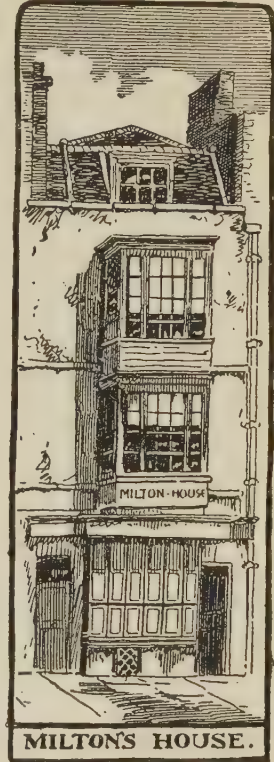 MILTON-HOUSE
MILTON'S HOUSE.